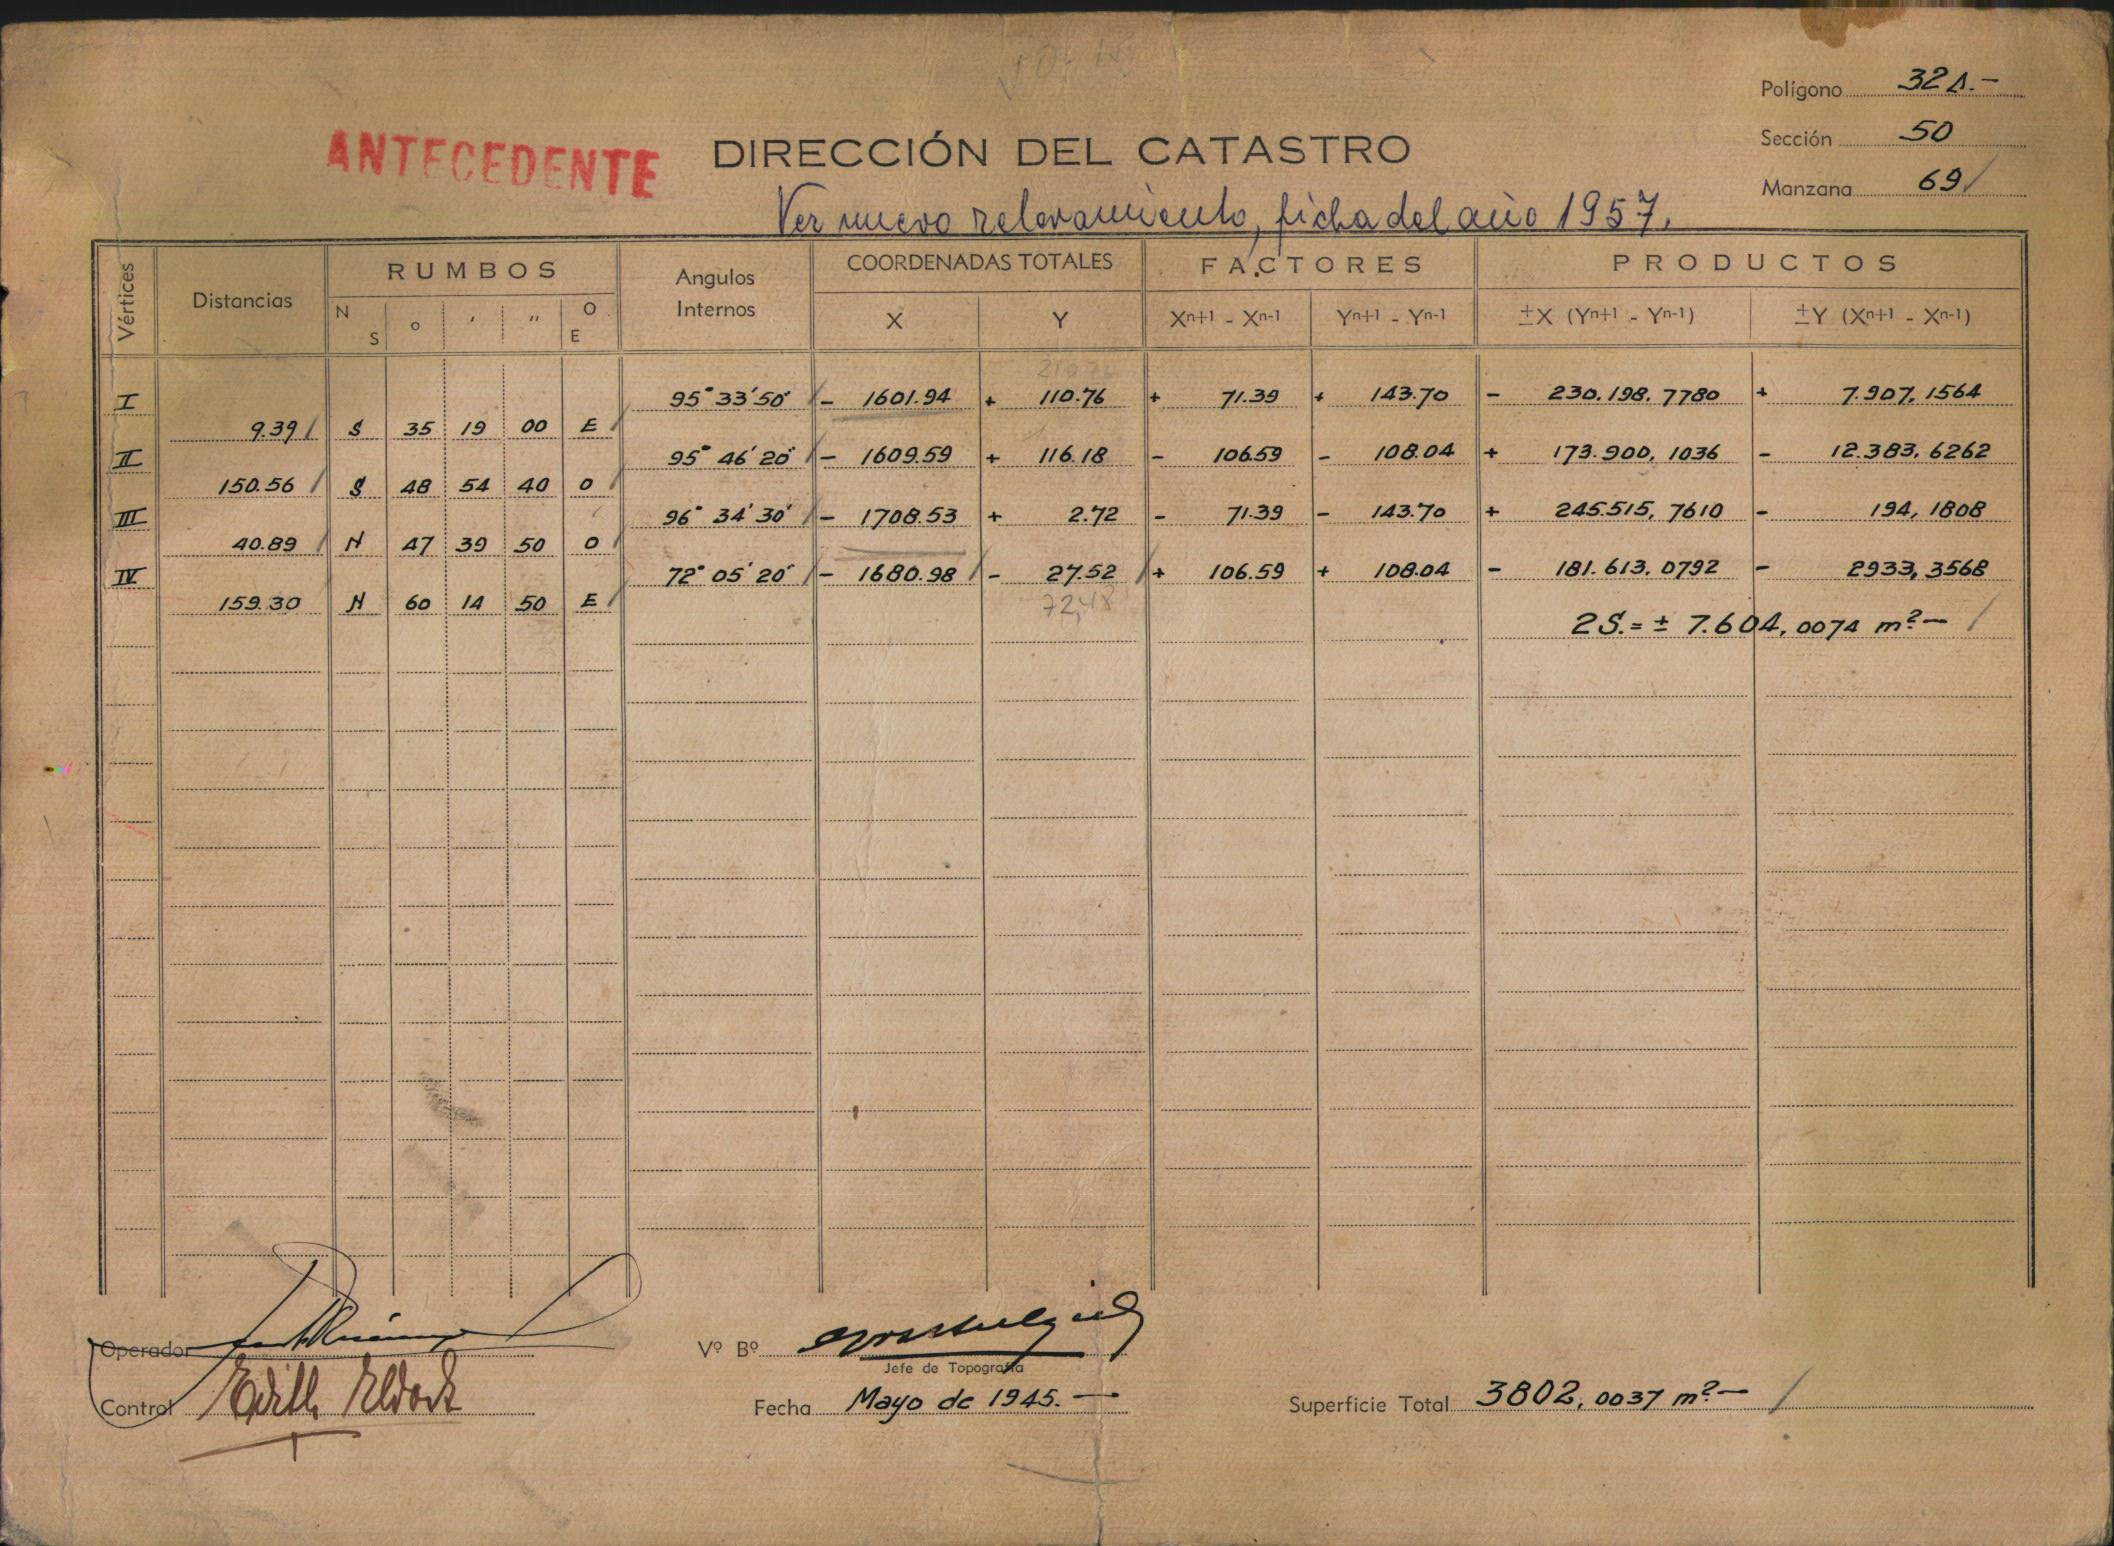 Polígono 32 A.-
ANTECEDENTE
DIRECCIÓN DEL CATASTRO
Sección 50
Manzana 69
Ver nuevo relevamiento, ficha del año 1957.
Vértices Distancias RUMBOS Angulos Internos COORDENADAS TOTALES FACTORES PRODUCTOS
N S o ' " O E X Y Xn+1 - Xn-1 Yn+1 - Yn-1 ±X (Yn+1 - Yn-1) ±Y (Xn+1 - Xn-1)
I 95° 33' 50" - 1601.94 + 110.76 + 71.39 + 143.70 - 230.198,7780 + 7.907,1564
9.39 S 35 19 00 E
II 95° 46' 20" - 1609.59 + 116.18 - 106.59 - 108.04 + 173.900,1036 - 12.383,6262
150.56 S 48 54 40 O
III 96° 34' 30" - 1708.53 + 2.72 - 71.39 - 143.70 + 245.515,7610 - 194,1808
40.89 N 47 39 50 O
IV 72° 05' 20" - 1680.98 - 27.52 + 106.59 + 108.04 - 181.613.0792 - 2933,3568
159.30 N 60 14 50 E
72,48
2S.= ± 7.604,0074 m²-
Operador
Vº Bº
Jefe de Topografía
Control Edith
Fecha Mayo de 1945.-
Superficie Total 3802,0037 m²-